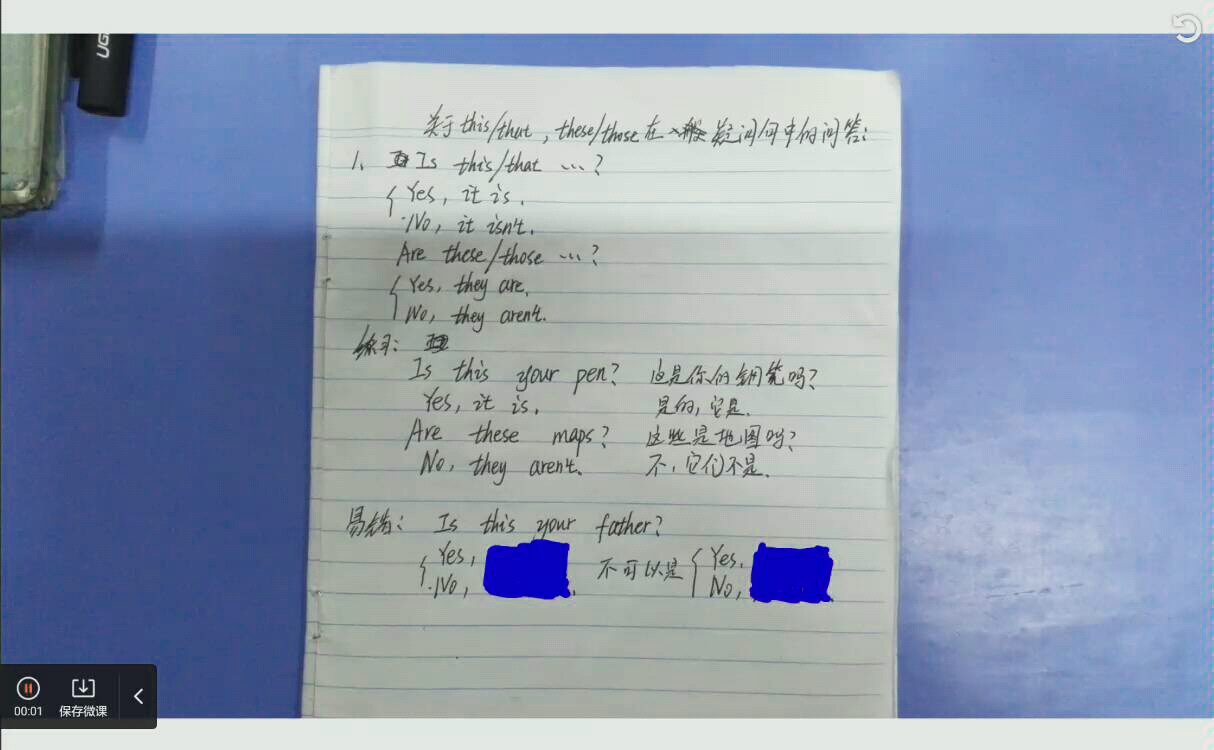 UG
关于this/that, these/those在一般疑问句中的问答:
1. Is this/that …?
Yes, it is.
No, it isn't.
Are these/those …?
Yes, they are.
No, they aren't.
练习:
Is this your pen? 这是你的钢笔吗?
Yes, it is. 是的,它是.
Are these maps? 这些是地图吗?
No, they aren't. 不,它们不是.
易错: Is this your father?
Yes, 不可以是 Yes,
No, . No,
00:01 保存微课